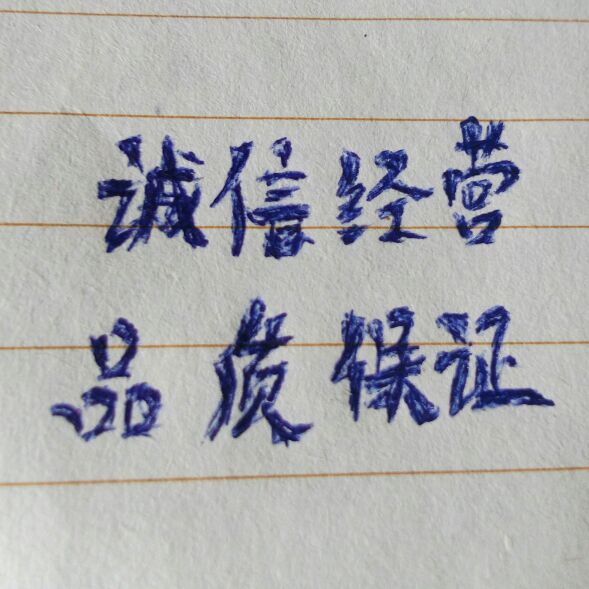 诚信经营
品质保证